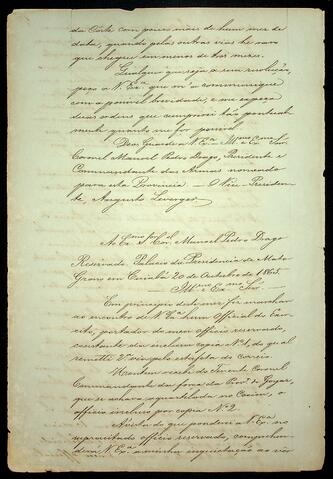 da Côrte com pouco mais de hum mez de
data, quando pelas outras vias he raro
que chegue em menos de tres mezes.
Qualquer que seja a sua resolução,
peço a V. Exª que m'a communique
com a possivel brevidade, e me expeça
suas ordens que cumprirei tão pontual
mente quanto me for possivel.
Deos Guarde a V. Exª Illmo e Ex. Snr.
Coronel Manoel Pedro Drago, Presidente e
Commandante das Armas nomeado
para esta Provincia. O Vice-Presiden
te, Augusto Leverger.
Ao Exmo Sr. Cor. Manoel Pedro Drago
Reservado Palacio da Presidencia de Mato
Grosso em Cuiabá 20 de Outubro de 1865.
Illmo e Exmo Snr.
Em principio deste mez fiz marchar
ao encontro de V. Exª hum Official do Exer
cito, portador do meu officio reservado,
constante da inclusa copia Nº 1, do qual
remetti 2ª via pelo estafeta do correio.
Mandou recebi do Tenente Coronel
Commandante da força da Prov. de Goyaz,
que se achava aquartelada no Coxim, o
officio incluso por copia Nº 2.
A vista do que ponderei a V. Exª no
supracitado officio reservado, comprehen
derá V. Exª a minha inquietação ao ver